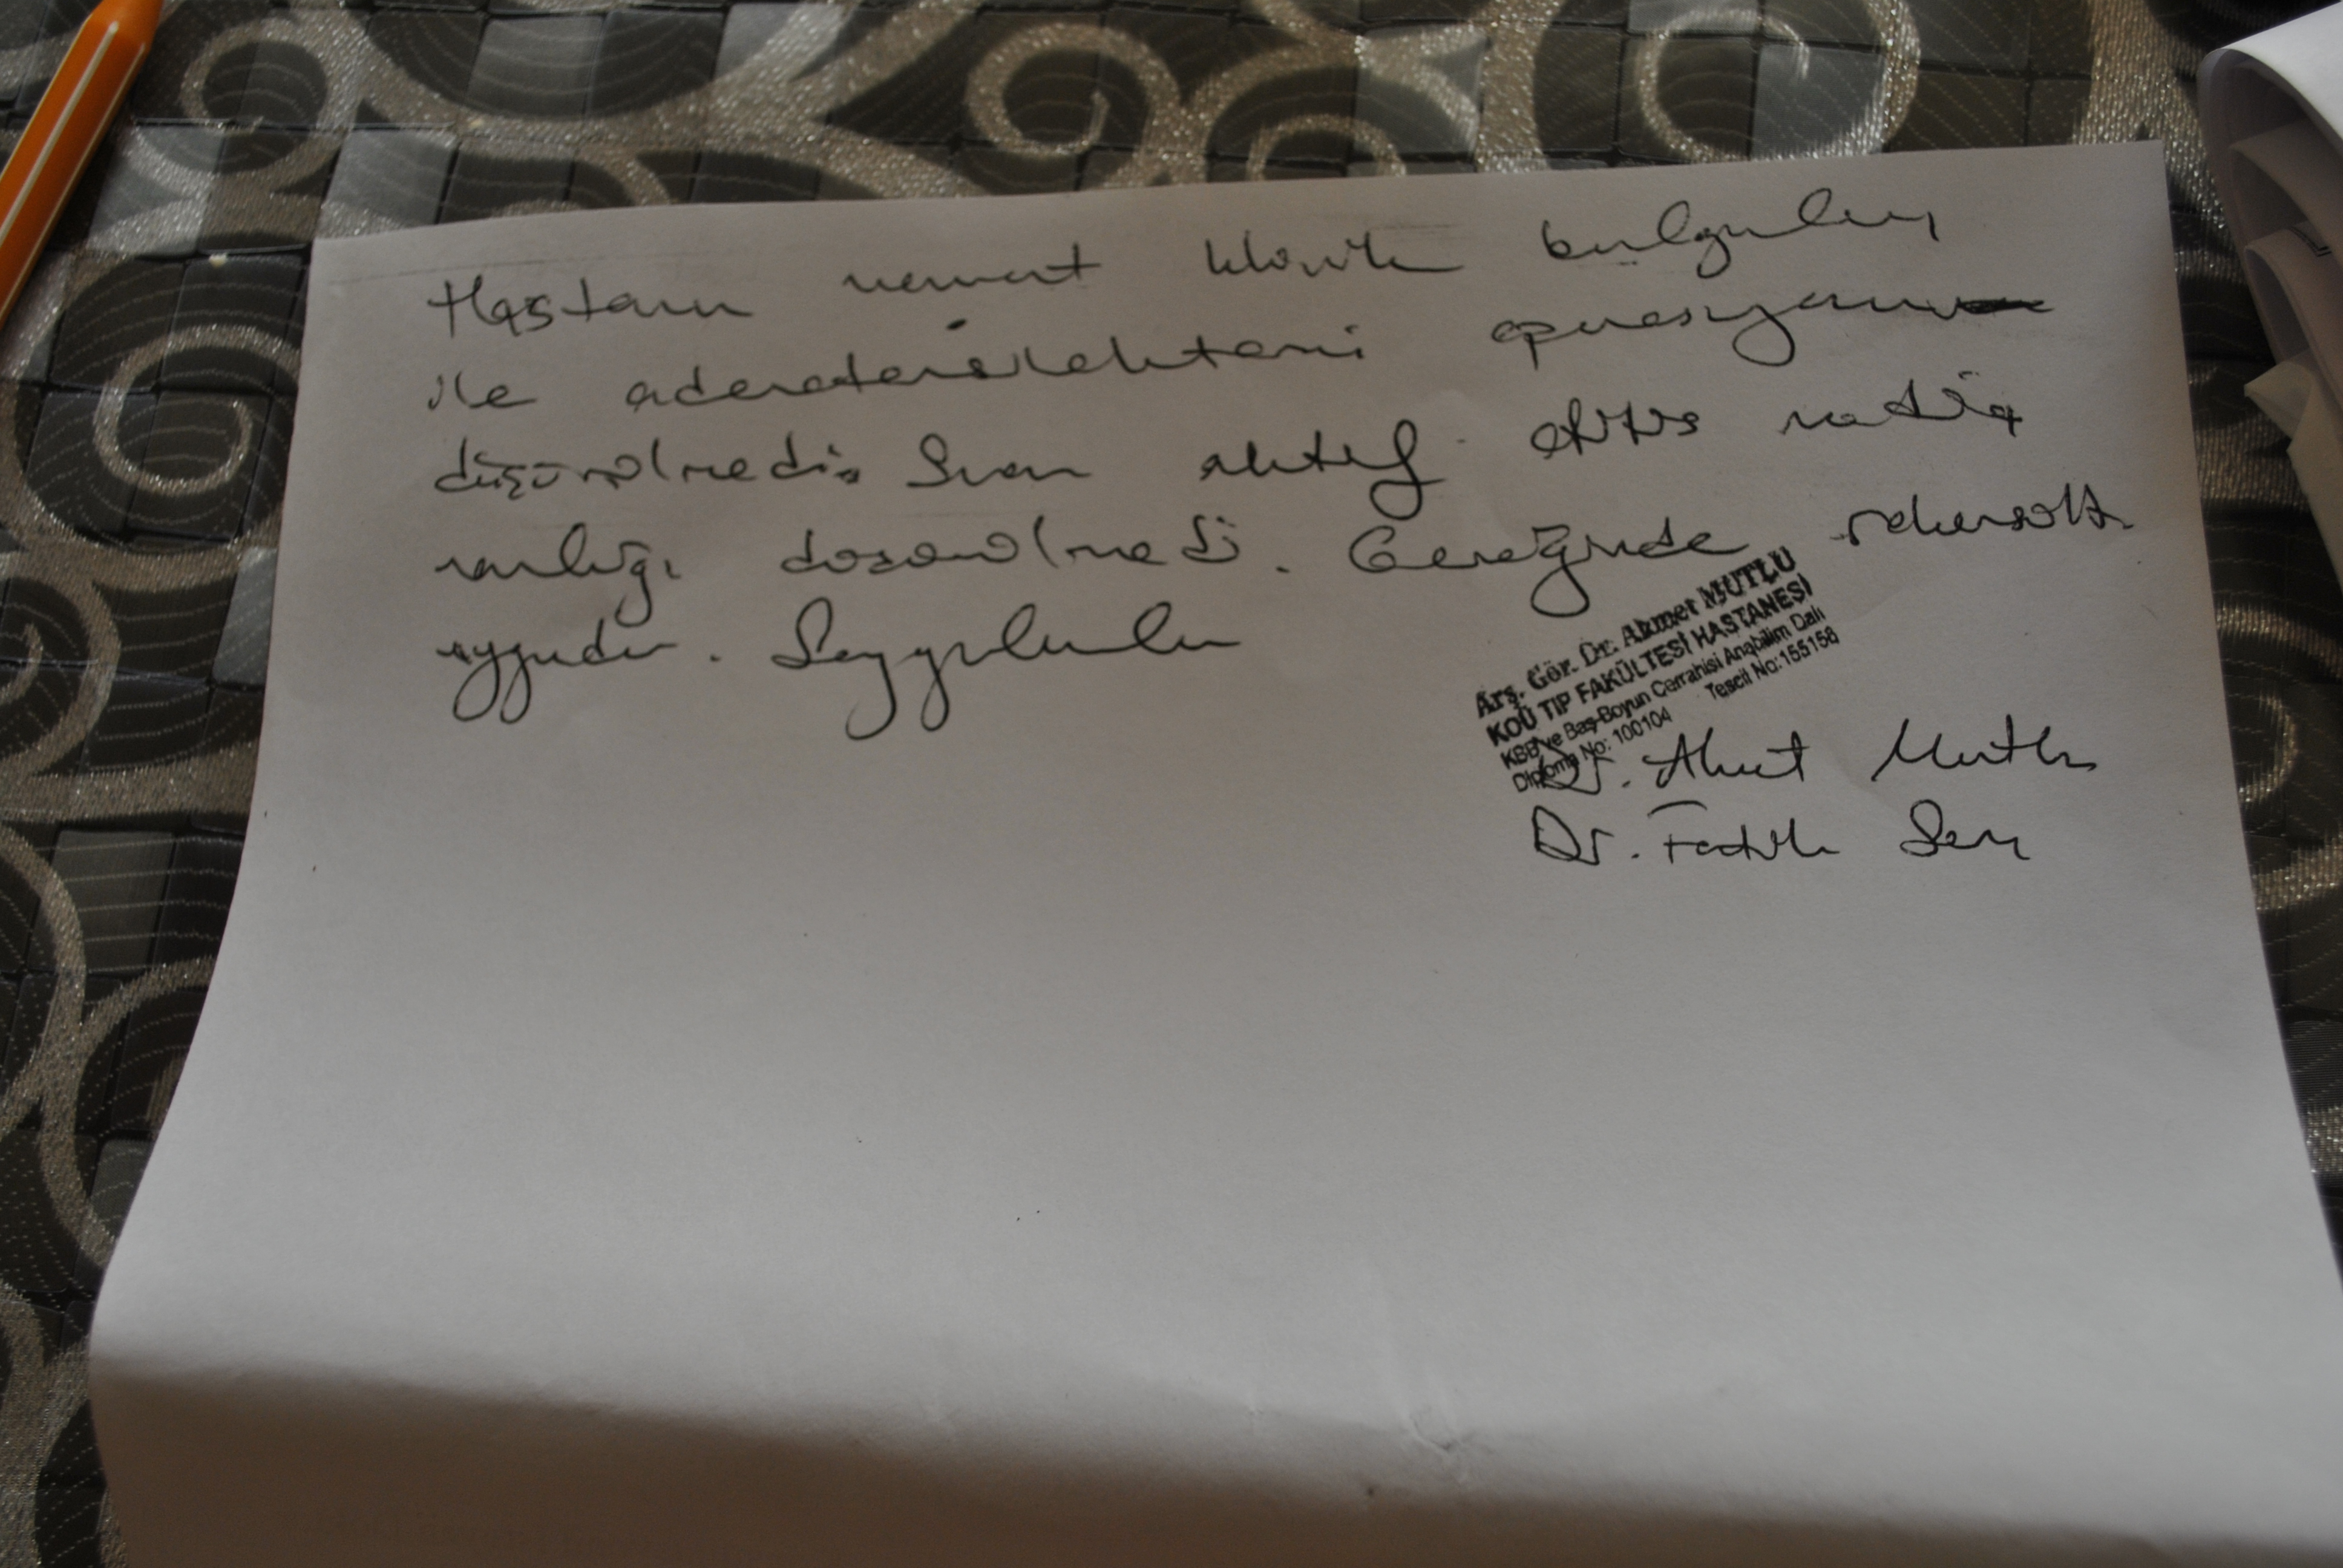 Hastanın mevcut klinik bulguları
ile adenotonsilektomi operasyonu
düşünülmedi. Şuan aktif otitis media
varlığı düşünülmedi. Gereğinde rekonsult.
uygundur. Saygılarımla
Arş. Gör. Dr. Ahmet MUTLU
KOÜ TIP FAKÜLTESİ HASTANESİ
KBB ve Baş-Boyun Cerrahisi Anabilim Dalı
Diploma No: 100104 Tescil No:155158
Dr. Ahmet Mutlu
Dr. Fatih